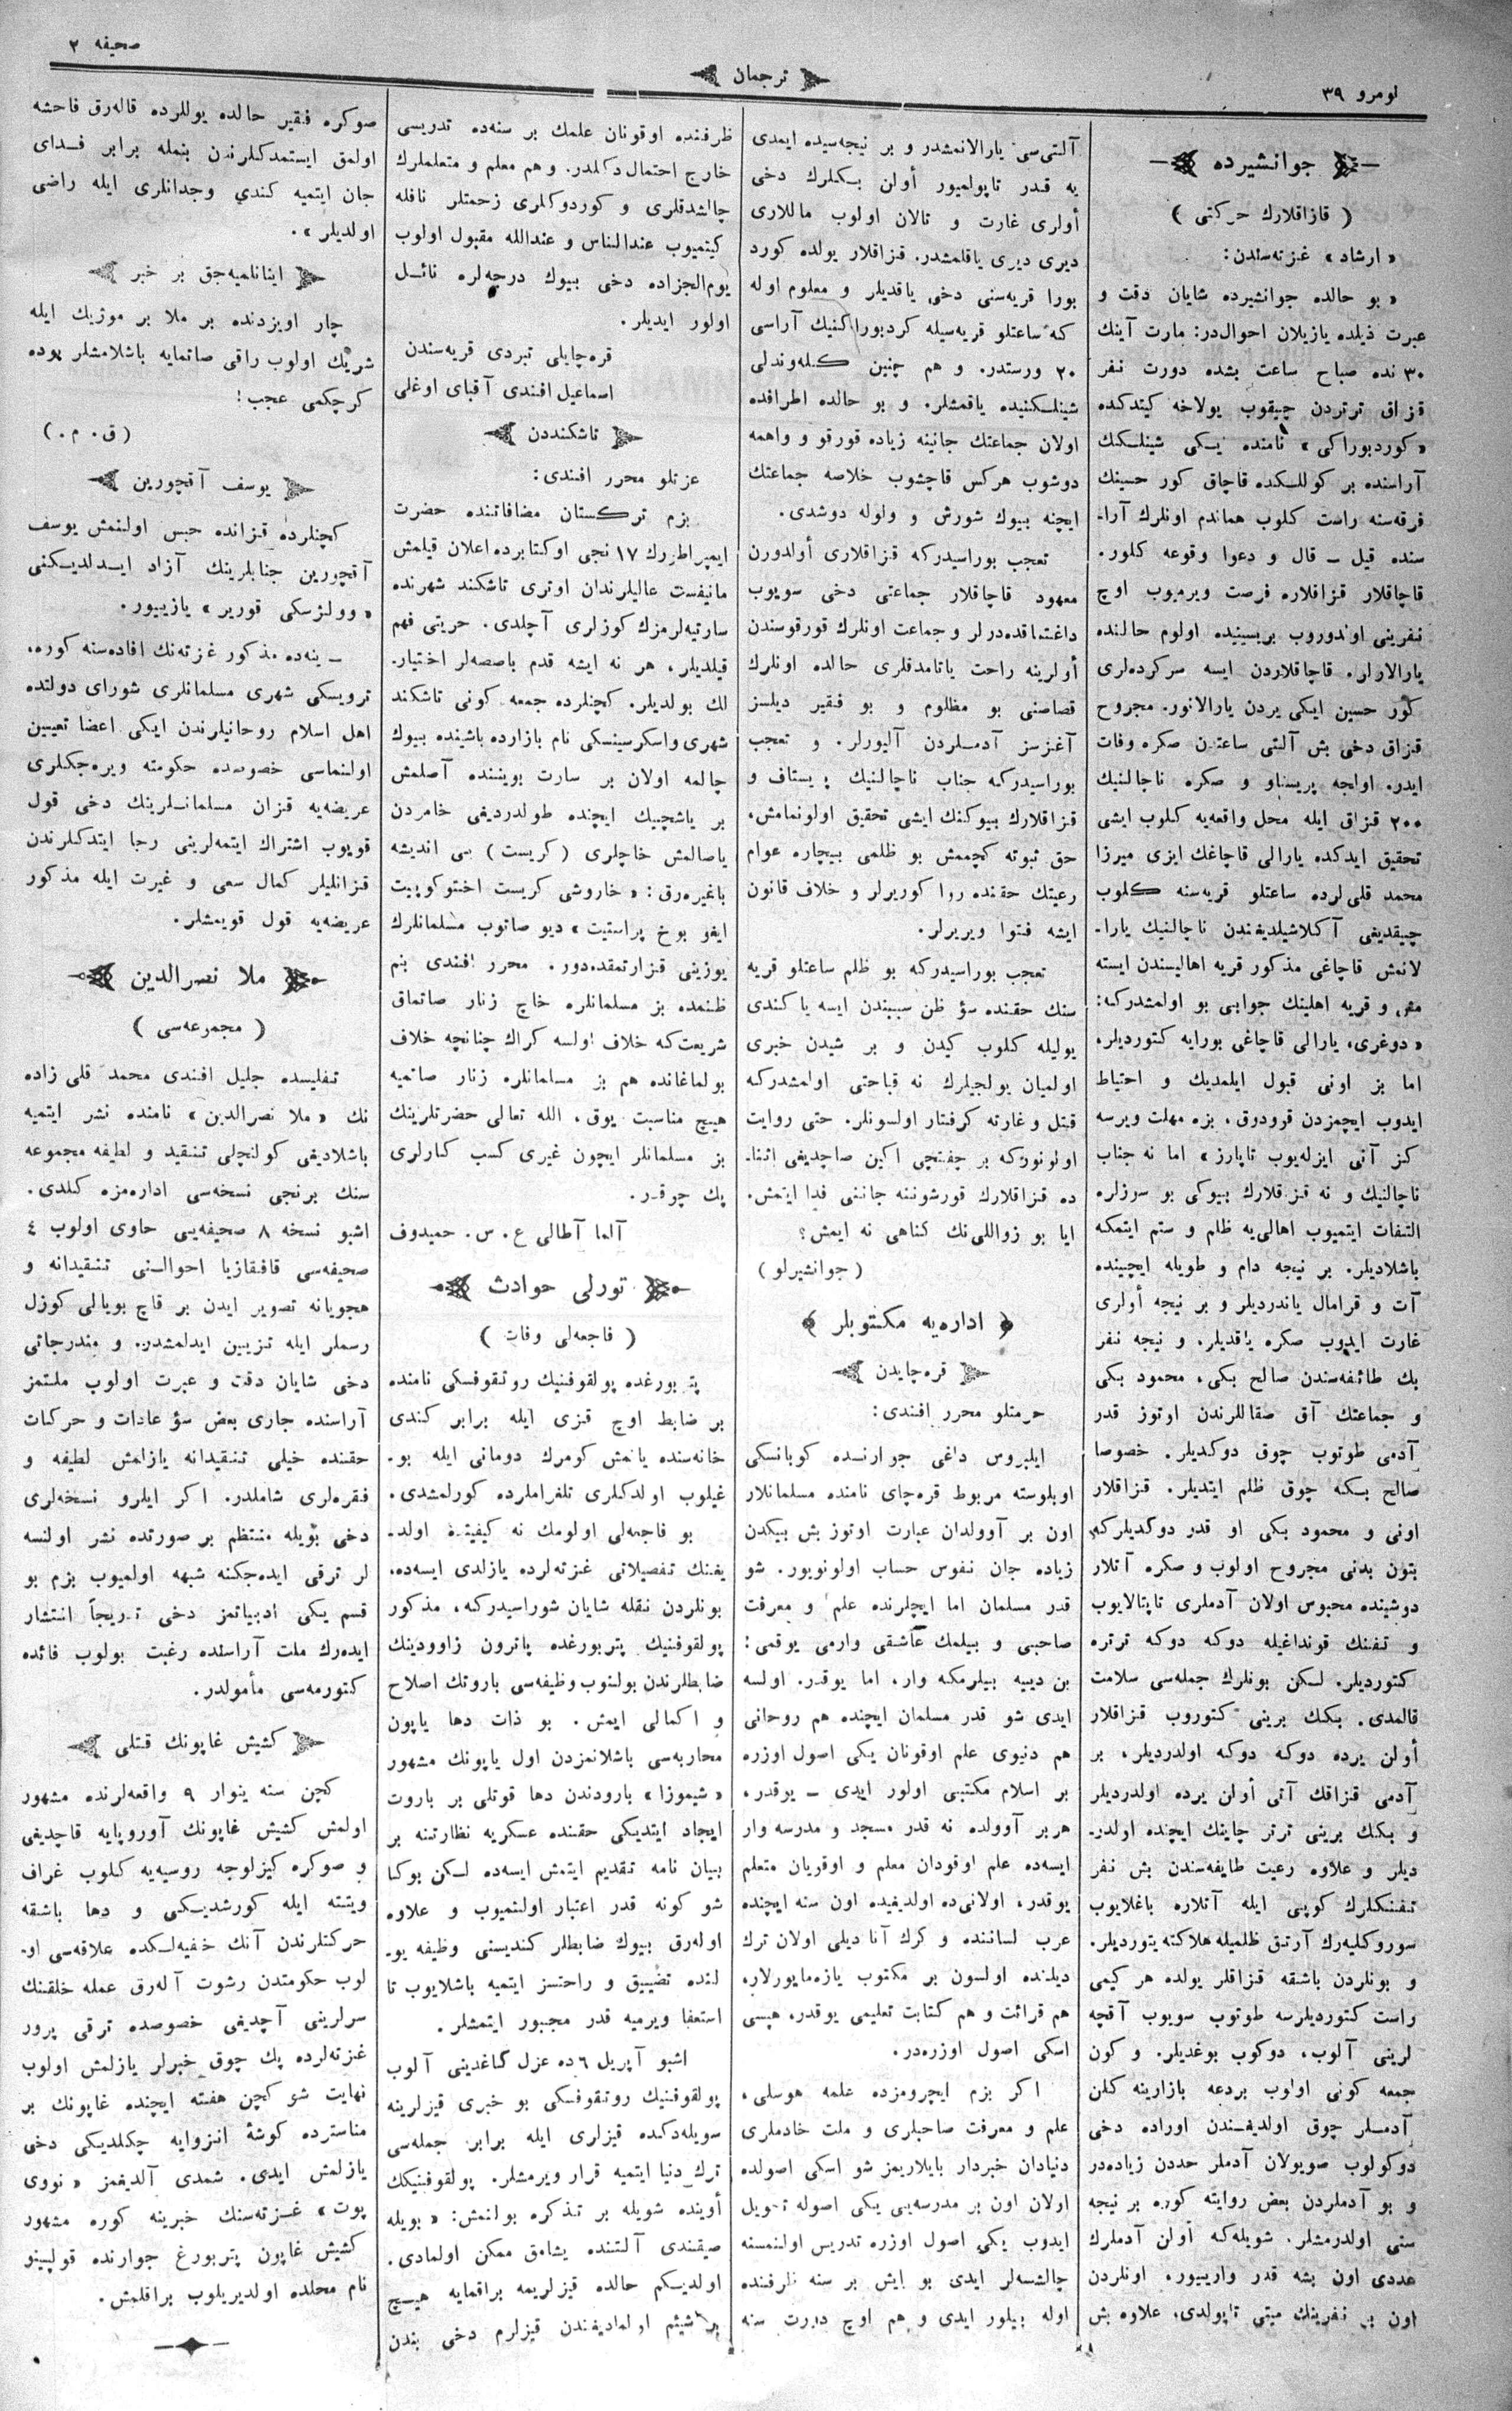 نومرو ٣٩
ترجمان
صحیفه ٢
جوانشیرده
( قازاقلارك حركتی )
« ارشاد » غزته‌سندن:
« بو حالده جوانشیرده شایان دقت و
عبرت ذیلده یازیلان احوال‌در: مارت آینك
٣٠ نده صباح ساعت بشده دورت نفر
قزاق ترتردن چیقوب یولاخه كیتدكده
« كوردبوراكی » نامنده ایكی شینلكنك
آراسنده بر كوللكده قاچاق كور حسینك
فرقه‌سنه راست كلوب هماندم اونلرك آرا-
سنده قیل – قال و دعوا وقوعه كلور.
قاچاقلار قزاقلاره فرصت ویرمیوب اوچ
نفرینی اوندوروب بریسینیده اولوم حالنده
یارالارلر. قاچاقلاردن ایسه سركرده‌لری
كور حسین ایكی یردن یارالانور. مجروح
قزاق دخی بش آلتی ساعتدن صكره وفات
ایدر. اولجه پریستاو و صكره ناچالنیك
٢٠٠ قزاق ایله محل واقعه‌یه كلوب ایشی
تحقیق ایدكده یارالی قاچاغك ایزی میرزا
محمد قلی‌لرده ساعتلو قریه‌سنه كلوب
چیقدیغی آكلاشیلدیغندن ناچالنیك یارا-
لانمش قاچاغی مذكور قریه اهالیسندن ایسته
مش و قریه اهلینك جوابی بو اولمشدركه:
« دوغری، یارالی قاچاغی بورایه كتوردیلر،
اما بز اونی قبول ایلمدیك و احتیاط
ایدوب ایچمزدن قوودوق، بزه مهلت ویرسه
كز آنی ایزله‌یوب تاپارز » اما نه جناب
ناچالنیك و نه قزاقلارك بیوكی بو سوزلره
التفات ایتمیوب اهالی‌یه ظلم و ستم ایتمكه
باشلادیلر. بر نیجه دام و طویله ایچینده
آت و قرامال یاندردیلر و بر نیجه أولری
غارت ایدوب صكره یاقدیلر. و نیجه نفر
بك طائفه‌سندن صالح بكی، محمود بكی
و جماعتك آق صقاللرندن اوتوز قدر
آدمی طوتوب چوق دوكدیلر. خصوصا
صالح بكه چوق ظلم ایتدیلر. قزاقلار
اونی و محمود بكی او قدر دوكدیلركه
بتون بدنی مجروح اولوب و صكره آتلار
دوشینده محبوس اولان آدملری تاپتالایوب
و تفنك قونداغیله دوكه دوكه ترتره
كتوردیلر. لكن بونلرك جمله‌سی سلامت
قالمدی. بكلك برینی كتوروب قزاقلار
أولن یرده دوكه دوكه اولدردیلر، بر
آدمی قزاقك آتی أولن یرده اولدردیلر
و بكك برینی ترتر چاینك ایچنده اولدر-
دیلر و علاوه رعیت طایفه‌سندن بش نفر
تفنكلرك كوپی ایله آتلاره باغلایوب
سوروكلیه‌رك آرتق ظلمیله هلاكته یتوردیلر.
و بونلردن باشقه قزاقلر یولده هر كیمی
راست كتوردیلرسه طوتوب سویوب آقچه
لرینی آلوب، دوكوب بوغدیلر. و كون
جمعه كونی اولوب بردعه بازارینه كلن
آدملر چوق اولدیغندن اوراده دخی
دوكولوب صویولان آدملر حددن زیاده‌در
و بو آدملردن بعض روایته كوره بر نیجه
سنی اولدرمشلر. شویله‌كه أولن آدملرك
عددی اون بشه قدر واریبور، اونلردن
اون بر نفرینك میتی تاپولدی، علاوه بش
آلتی‌سی یارالانمشدر و بر نیجه‌سیده ایمدی
یه قدر تاپولمیور أولن بكلرك دخی
أولری غارت و تالان اولوب ماللاری
دیری دیری یاقلمشدر. قزاقلار یولده كورد
بورا قریه‌سنی دخی یاقدیلر و معلوم اوله
كه ساعتلو قریه‌سیله كردبوراكنیك آراسی
٢٠ ورستدر. و هم چنین كله‌وندلی
شینلكنیده یاقمشلر. و بو حالده اطرافده
اولان جماعتك جانینه زیاده قورقو و واهمه
دوشوب هركس قاچشوب خلاصه جماعتك
ایچنه بیوك شورش و ولوله دوشدی.
تعجب بوراسیدركه قزاقلاری أولدورن
معهود قاچاقلار جماعتی دخی سویوب
داغتماقده‌درلر و جماعت اونلرك قورقوسندن
أولرینه راحت یاتامدقلری حالده اونلرك
قصاصنی بو مظلوم و بو فقیر دیلسز
آغزسز آدملردن آلیورلر. و تعجب
بوراسیدركه جناب ناچالنیك پریستاف و
قزاقلارك بیوكنك ایشی تحقیق اولونمامش،
حق ثبوته كچممش بو ظلمی بیچاره عوام
رعیتك حقنده روا كوریرلر و خلاف قانون
ایشه فتوا ویریرلر.
تعجب بوراسیدركه بو ظلم ساعتلو قریه
سنك حقنده سؤ ظن سببندن ایسه یا كندی
یولیله كلوب كیدن و بر شیدن خبری
اولمیان یولجیلرك نه قباحتی اولمشدركه
قتل و غارته كرفتار اولسونلر. حتی روایت
اولونوركه بر جفتچی اكین صاچدیغی اثنا-
ده قزاقلارك قورشوننه جاننی فدا ایتمش.
ایا بو زواللی‌نك كناهی نه ایمش؟
( جوانشیرلو )
اداره‌یه مكتوبلر
قره‌چایدن
حرمتلو محرر افندی:
ایلبروس داغی جوارنده كوبانسكی
اوبلوسته مربوط قره‌چای نامنده مسلمانلار
اون بر آوولدان عبارت اوتوز بش بیكدن
زیاده جان نفوس حساب اولونویور. شو
قدر مسلمان اما ایچلرنده علم و معرفت
صاحبی و بیلمك عاشقی وارمی یوقمی:
بن دییه بیلرمكه وار، اما یوقدر. اولسه
ایدی شو قدر مسلمان ایچنده هم روحانی
هم دنیوی علم اوقونان یكی اصول اوزره
بر اسلام مكتبی اولور ایدی – یوقدر،
هربر آوولده نه قدر مسجد و مدرسه وار
ایسه‌ده علم اوقودان معلم و اوقریان متعلم
یوقدر، اولانی‌ده اولدیغیده اون سنه ایچنده
عرب لساننده و كرك آنا دیلی اولان ترك
دیلنده اولسون بر مكتوب یازه‌مایورلار،
هم قرائت و هم كتابت تعلیمی یوقدر، هپسی
اسكی اصول اوزره‌در.
اكر بزم ایچرومزده علمه هوسلی،
علم و معرفت صاحبلری و ملت خادملری
دنیادان خبردار بایلاریمز شو اسكی اصولده
اولان اون بر مدرسه‌یی یكی اصوله تحویل
ایدوب یكی اصول اوزره تدریس اولنمسنه
چالشسه‌لر ایدی بو ایش بر سنه ظرفنده
اوله بیلور ایدی و هم اوچ دورت سنه
ظرفنده اوقونان علمك بر سنه‌ده تدریسی
خارج احتمال دكلدر. و هم معلم و متعلملرك
چالشدقلری و كوردوكلری زحمتلر نافله
كیتمیوب عندالناس و عندالله مقبول اولوب
یوم‌الجزاده دخی بیوك درجه‌لره نائل
اولور ایدیلر.
قره‌چایلی تبردی قریه‌سندن
اسماعیل افندی آقبای اوغلی
تاشكنددن
عزتلو محرر افندی:
بزم تركستان مضافاتنده حضرت
ایمپراطورك ١٧ نجی اوكتابرده اعلان قیلمش
مانیفست عالیلرندان اوتری تاشكند شهرنده
سارتیه‌لرمزك كوزلری آچلدی. حریتی فهم
قیلدیلر، هر نه ایشه قدم باصصه‌لر اختیار-
لك بولدیلر. كچنلرده جمعه كونی تاشكند
شهری واسكرسینسكی نام بازارده باشینده بیوك
چالمه اولان بر سارت بویننده آصلمش
بر یاشچیك ایچنده طولدردیغی خامردن
یاصالمش خاچلری (كریست) بی اندیشه
باغیره‌رق: « خاروشی كریست اختوكوپیت
ایغو بوخ پراستیت » دیو صاتوب مسلمانلرك
یوزینی قزارتمقده‌دور. محرر افندی بنم
ظنمده بز مسلمانلره خاچ زنار صاتماق
شریعت‌كه خلاف اولسه كراك چنانچه خلاف
بولماغانده هم بز مسلمانلره زنار صاتمیه
هیچ مناسبت یوق، الله تعالی حضرتلرینك
بز مسلمانلر ایچون غیری كسب كارلری
پك چوقدر.
آلما آطالی ع. س. حمیدوف
تورلی حوادث
( فاجعه‌لی وفات )
پتربورغده پولقوفنیك روتقوفسكی نامنده
بر ضابط اوچ قزی ایله برابر كندی
خانه‌سنده یانمش كومرك دومانی ایله بو-
غیلوب اولدكلری تلغراملرده كورلمشدی.
بو فاجعه‌لی اولومك نه كیفیتده اولد-
یغنك تفصیلاتی غزته‌لرده یازلدی ایسه‌ده،
بونلردن نقله شایان شوراسیدركه، مذكور
پولقوفنیك پتربورغده پاترون زاوودینك
ضابطلرندن بولنوب وظیفه‌سی باروتك اصلاح
و اكمالی ایمش. بو ذات دها یاپون
محاربه‌سی باشلانمزدن اول یاپونك مشهور
« شیموزا » بارودندن دها قوتلی بر باروت
ایجاد ایتدیكی حقنده عسكریه نظارتنه بر
بیان نامه تقدیم ایتمش ایسه‌ده لكن بوكا
شو كونه قدر اعتبار اولنمیوب و علاوه
اوله‌رق بیوك ضابطلر كندیسنی وظیفه یو-
لنده تضییق و راحتسز ایتمیه باشلایوب تا
استعفا ویرمیه قدر مجبور ایتمشلر.
اشبو آپریل ٦ ده عزل كاغدینی آلوب
پولقوفنیك روتقوفسكی بو خبری قیزلرینه
سویله‌دكده قیزلری ایله برابر جمله‌سی
ترك دنیا ایتمیه قرار ویرمشلر. پولقوفنیكك
أوینده شویله بر تذكره بولنمش: « بویله
صیقندی آلتنده یشامق ممكن اولمادی.
اولدیكم حالده قیزلریمه براقمایه هیچ
بر شیئم اولمادیغندن قیزلرم دخی بندن
صوكره فقیر حالده یوللرده قاله‌رق فاحشه
اولمق ایستمدكلرندن بنمله برابر فدای
جان ایتمیه كندی وجدانلری ایله راضی
اولدیلر ».
اینانلمیه‌جق بر خبر
چار اویزدنده بر ملا بر موژیك ایله
شریك اولوب راقی صاتمایه باشلامشلر بوده
كرچكمی عجب!
(ق. م.)
یوسف آقچورین
كچنلرده قزانده حبس اولنمش یوسف
آقچورین جنابلرینك آزاد ایدلدیكنی
« وولژسكی قوریر » یازییور.
– ینه‌ده مذكور غزته‌نك افاده‌سنه كوره،
ترویسكی شهری مسلمانلری شورای دولتده
اهل اسلام روحانیلرندن ایكی اعضا تعیین
اولنماسی خصوصده حكومته ویره‌جكلری
عریضه‌یه قزان مسلمانلرینك دخی قول
قویوب اشتراك ایتمه‌لرینی رجا ایتدكلرندن
قزانلیلر كمال سعی و غیرت ایله مذكور
عریضه‌یه قول قویمشلر.
ملا نصرالدین
( مجموعه‌سی )
تفلیسده جلیل افندی محمد قلی زاده
نك « ملا نصرالدین » نامنده نشر ایتمیه
باشلادیغی كولنچلی تنقید و لطیفه مجموعه
سنك برنجی نسخه‌سی اداره‌مزه كلدی.
اشبو نسخه ٨ صحیفه‌یی حاوی اولوب ٤
صحیفه‌سی قافقازیا احوالنی تنقیدانه و
هجویانه تصویر ایدن بر قاچ بویالی كوزل
رسملر ایله تزیین ایدلمشدر. و مندرجاتی
دخی شایان دقت و عبرت اولوب ملتمز
آراسنده جاری بعض سؤ عادات و حركات
حقنده خیلی تنقیدانه یازلمش لطیفه و
فقره‌لری شاملدر. اكر ایلرو نسخه‌لری
دخی بویله منتظم بر صورتده نشر اولنسه
لر ترقی ایده‌جكنه شبهه اولمیوب بزم بو
قسم یكی ادبیاتمز دخی تدریجاً انتشار
ایده‌رك ملت آراسنده رغبت بولوب فائده
كتورمه‌سی مأمولدر.
كشیش غاپونك قتلی
كچن سنه ینوار ٩ واقعه‌لرنده مشهور
اولمش كشیش غاپونك آوروپایه قاچدیغی
و صوكره كیزلوجه روسیه‌یه كلوب غراف
ویتته ایله كورشدیكی و دها باشقه
حركتلرندن آنك خفیه‌لكده علاقه‌سی او-
لوب حكومتدن رشوت آله‌رق عمله خلقنك
سرلرینی آچدیغی خصوصده ترقی پرور
غزته‌لرده پك چوق خبرلر یازلمش اولوب
نهایت شو كچن هفته ایچنده غاپونك بر
مناسترده كوشهٔ انزوایه چكلدیكی دخی
یازلمش ایدی. شمدی آلدیغمز « نووی
پوت » غزته‌سنك خبرینه كوره مشهور
كشیش غاپون پتربورغ جوارنده قولپینو
نام محلده اولدیریلوب براقلمش.